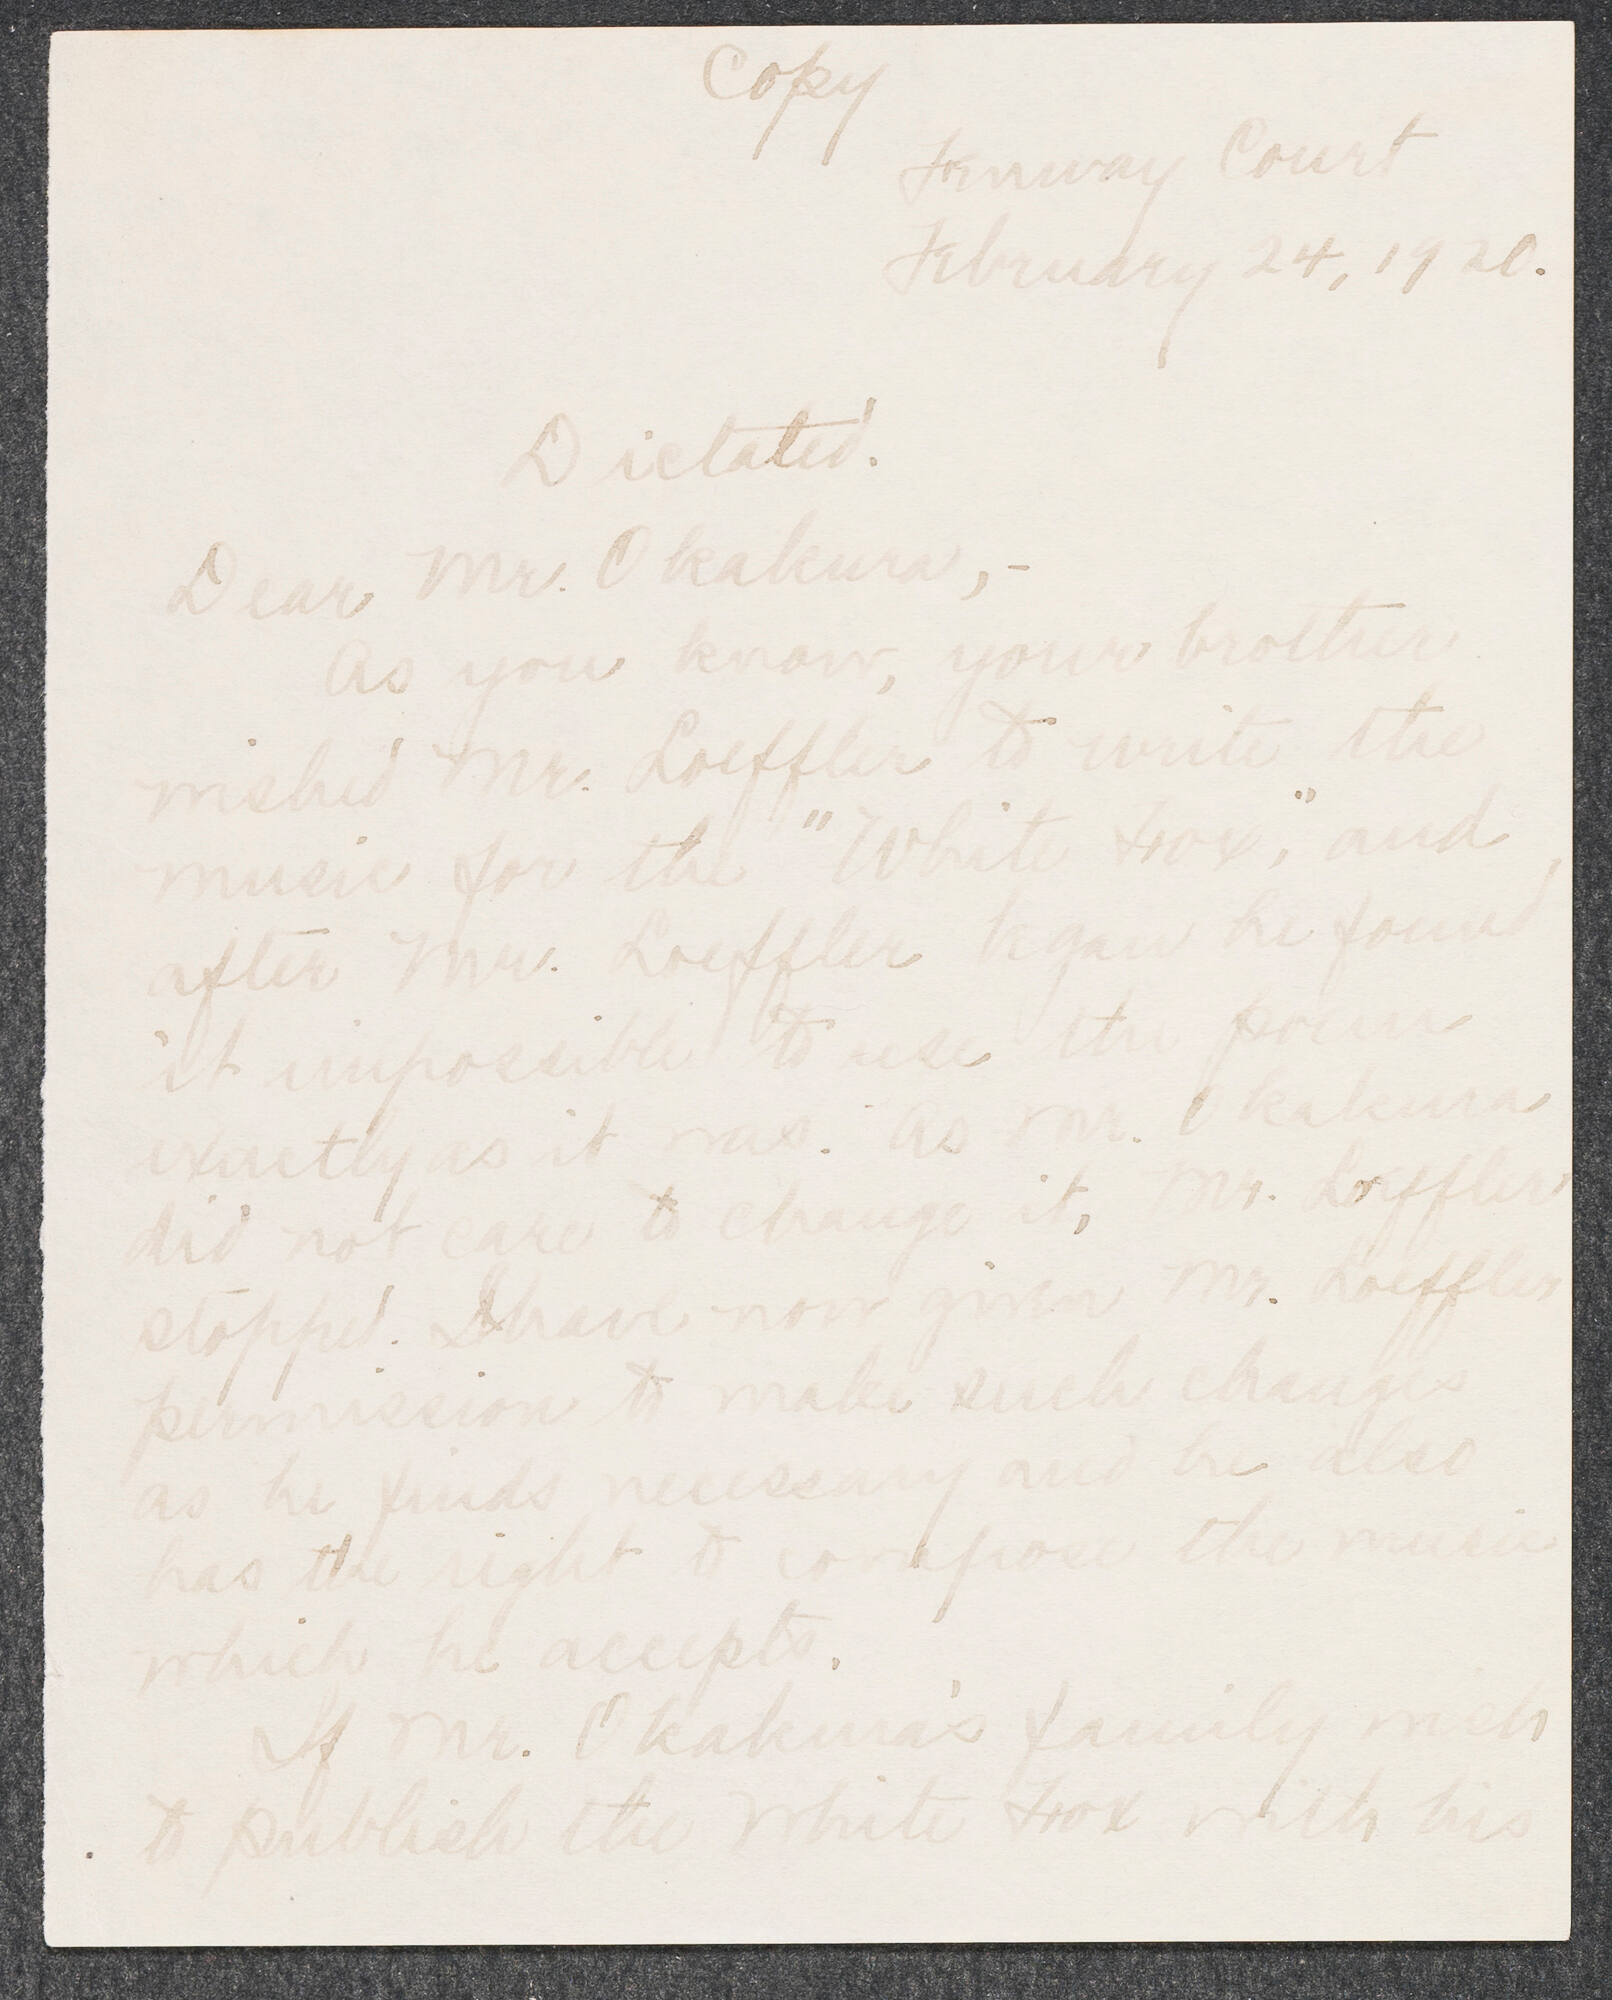 Copy
Fenway Court
February 24, 1920.
Dictated.
Dear Mr. Okakura,-
As you know, your brother
wished Mr. Loeffler to write the
music for the "White Fox," and
after Mr. Loeffler began he found
it impossible to use the poem
exactly as it was. As Mr. Okakura
did not care to change it, Mr. Loeffler
stopped. I have now given Mr. Loeffler
permission to make such changes
as he finds necessary and he also
has the right to compose the music
which he accepts.
If Mr. Okakura's family wish
to publish the White Fox with his